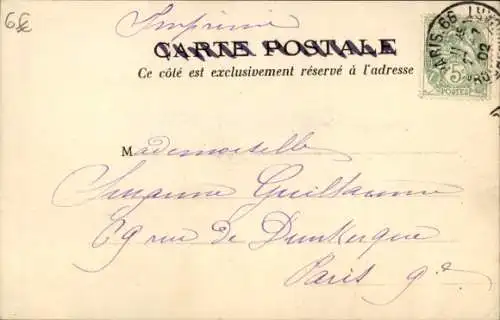 6€
Imprimé
CARTE POSTALE
Ce côté est exclusivement réservé à l'adresse
PARIS. 66
02
5c
POSTES
Mademoiselle
Suzanne Guillaume
69 rue de Dunkerque
Paris 9e